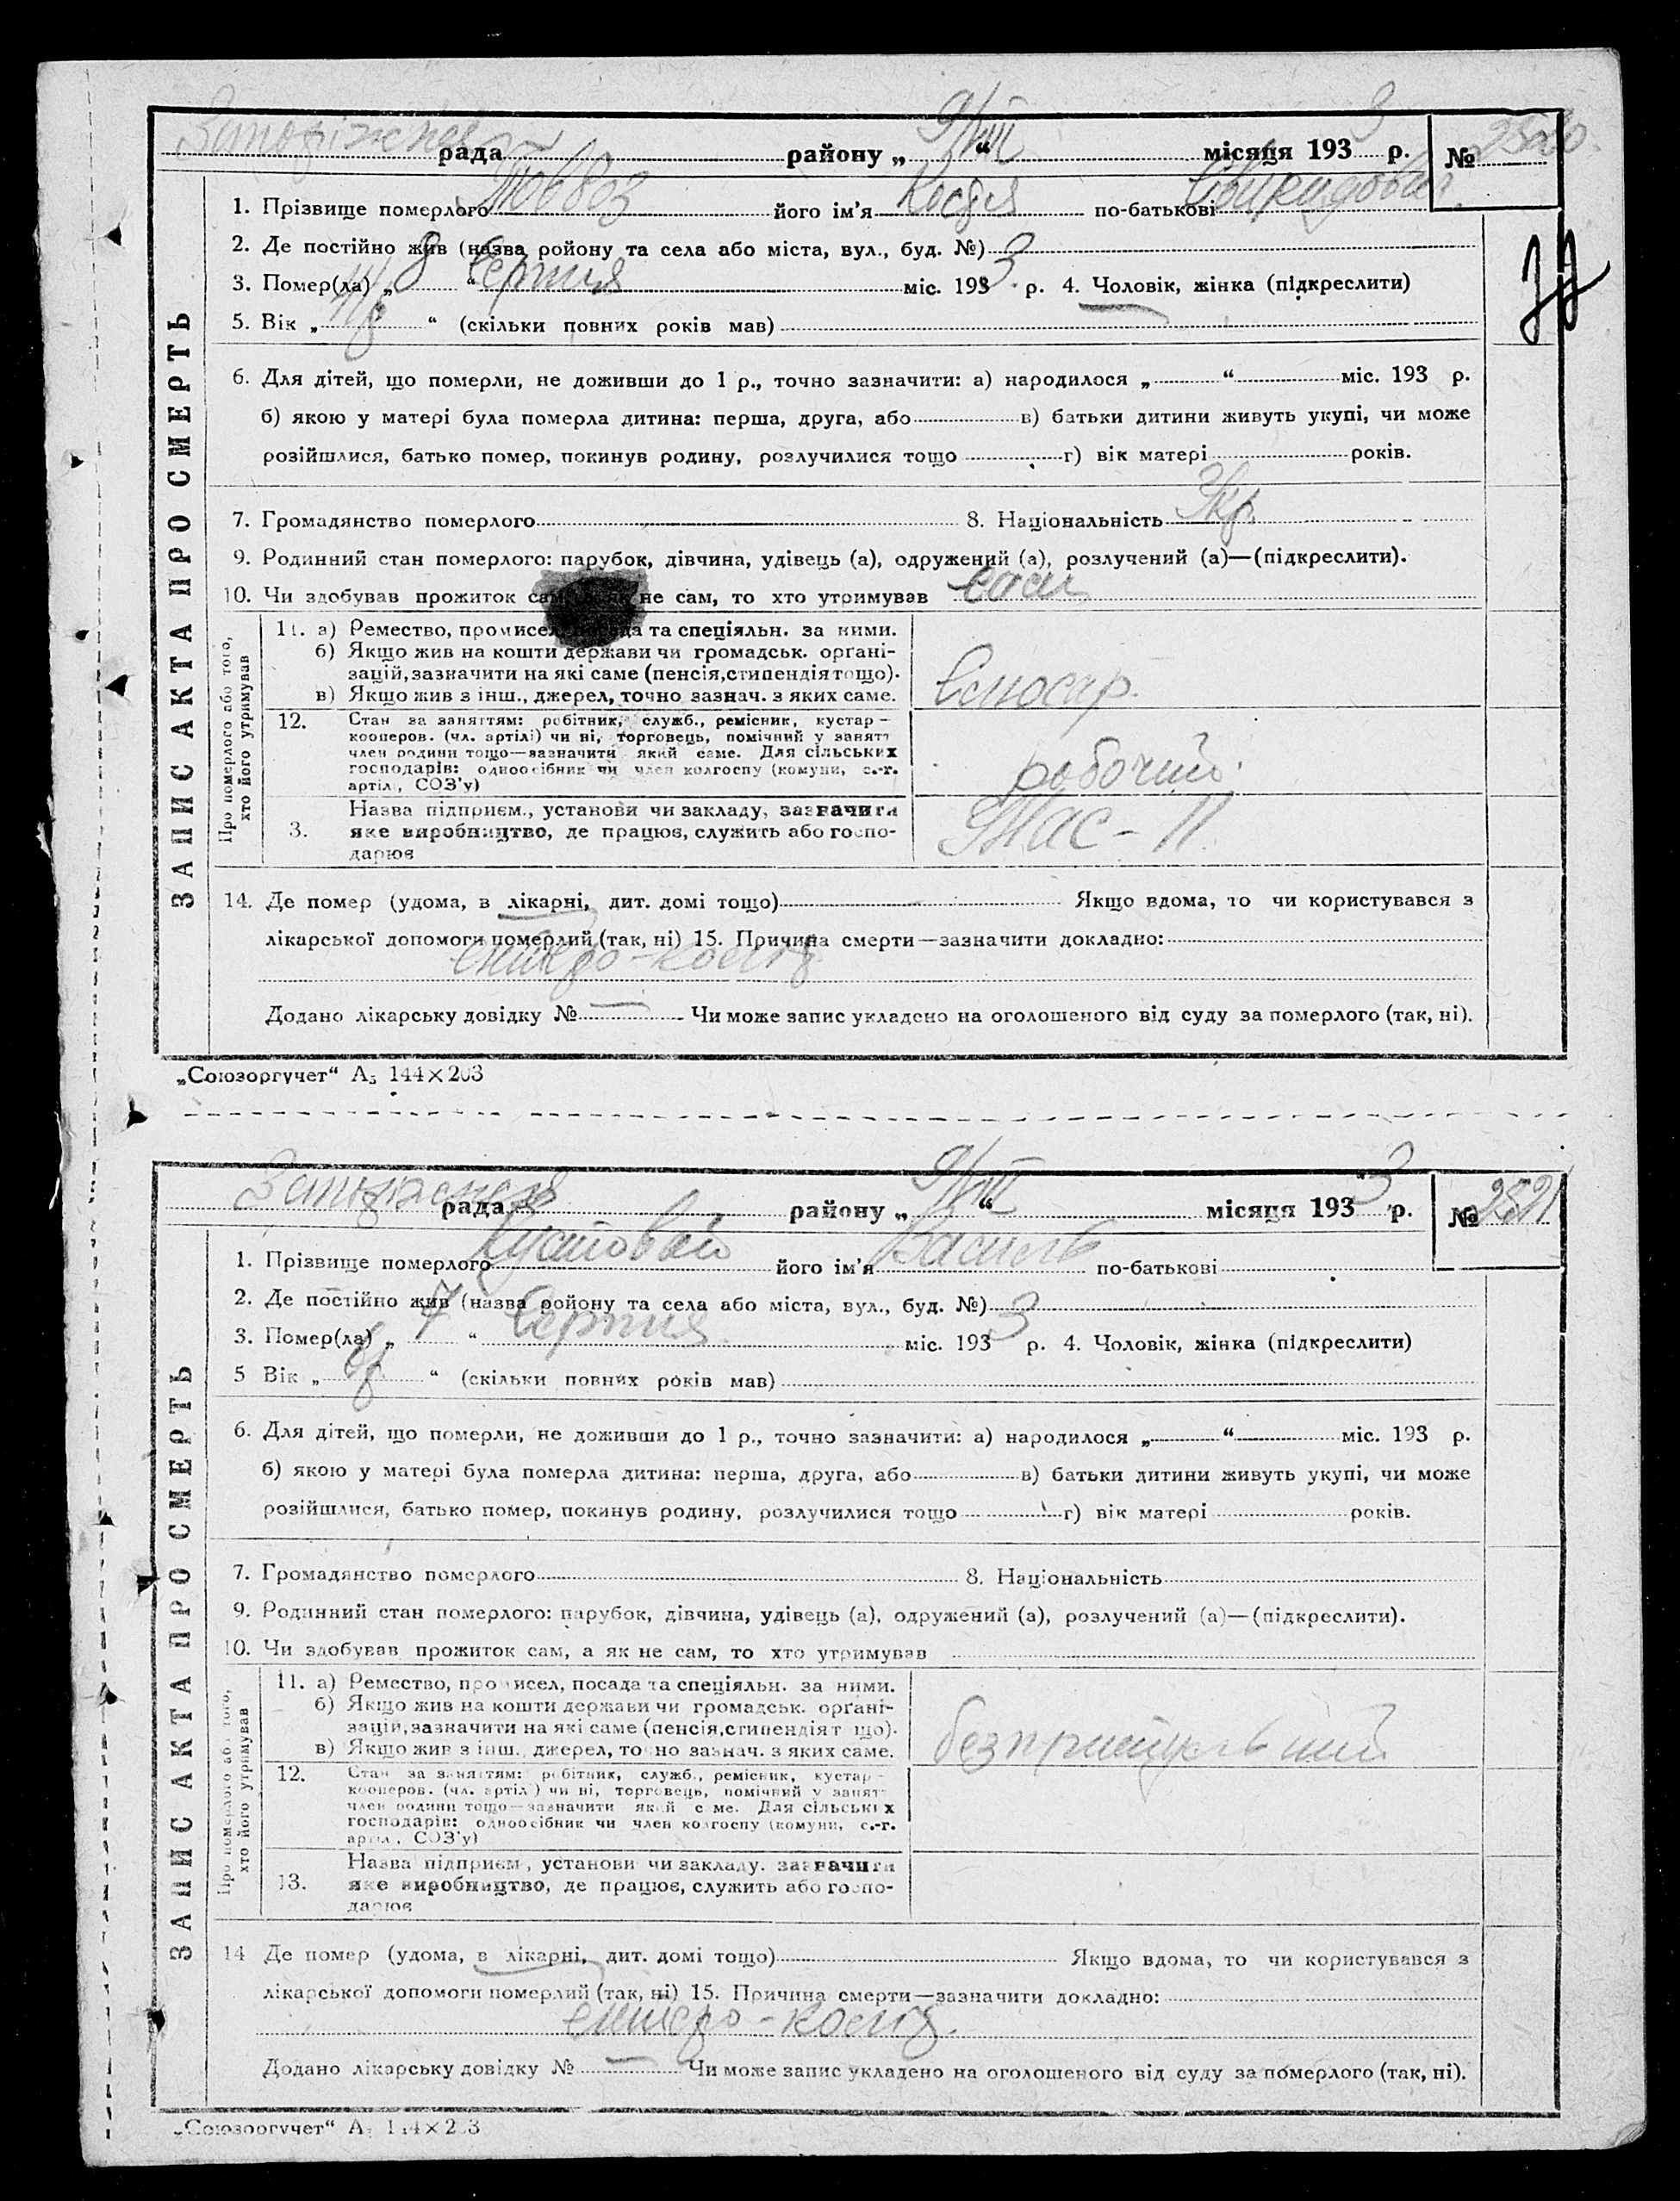 Запоріжська рада району „ 9/VIII “ місяця 193 3 р. №
1. Прізвище померлого його ім'я по-батькові
2. Де постійно жив (назва ройону та села або міста, вул., буд. №)
3. Помер(ла) „ 8 “ Серпня міс. 193 3 р. 4. Чоловік, жінка (підкреслити)
5. Вік „ “ (скільки повних років мав)
6. Для дітей, що померли, не доживши до 1 р., точно зазначити: а) народилося „ “ міс. 193 р.
б) якою у матері була померла дитина: перша, друга, або в) батьки дитини живуть укупі, чи може
розійшлися, батько помер, покинув родину, розлучилися тощо г) вік матері років.
7. Громадянство померлого 8. Національність Укр.
9. Родинний стан померлого: парубок, дівчина, удівець (а), одружений (а), розлучений (а)—(підкреслити).
10. Чи здобував прожиток сам, як не сам, то хто утримував сам
ЗАПИС АКТА ПРО СМЕРТЬ
Про померлого або того, хто його утримував
11. а) Ремество, промисел, посада та спеціяльн. за ними.
б) Якщо жив на кошти держави чи громадськ. орґані-
зацій, зазначити на які саме (пенсія, стипендія тощо).
в) Якщо жив з інш., джерел, точно зазнач. з яких саме.
Слюсар.
12. Стан за заняттям: робітник, служб., ремісник, кустар –
кооперов. (чл. артілі) чи ні, торговець, помічний у занятт
член родини тощо—зазначити який саме. Для сільських
господарів: одноосібник чи член колгоспу (комуни, с.-г.
артіл , СОЗ'у)
робочий.
3. Назва підприєм., установи чи закладу, зазначити
яке виробництво, де працює, служить або госпо-
дарює
14. Де помер (удома, в лікарні, дит. домі тощо) Якщо вдома, то чи користувався з
лікарської допомоги померлий (так, ні) 15. Причина смерти—зазначити докладно:
ентеро-коліт
Додано лікарську довідку № — Чи може запис укладено на оголошеного від суду за померлого (так, ні).
„Союзоргучет“ А5 144×203
Запоріжська рада району „ 9/VIII “ місяця 193 3 р. № 2521
1. Прізвище померлого Кустовой його ім'я Василь по-батькові
2. Де постійно жив (назва ройону та села або міста, вул., буд. №)
3. Помер(ла) „ 7 “ Серпня міс. 193 3 р. 4. Чоловік, жінка (підкреслити)
5 Вік „ “ (скільки повних років мав)
6. Для дітей, що померли, не доживши до 1 р., точно зазначити: а) народилося „ “ міс. 193 р.
б) якою у матері була померла дитина: перша, друга, або в) батьки дитини живуть укупі, чи може
розійшлися, батько помер, покинув родину, розлучилися тощо г) вік матері років.
7. Громадянство померлого 8. Національність
9. Родинний стан померлого: парубок, дівчина, удівець (а), одружений (а), розлучений (а)—(підкреслити).
10. Чи здобував прожиток сам, а як не сам, то хто утримував
ЗАПИС АКТА ПРО СМЕРТЬ
Про померлого або того, хто його утримував
11. а) Ремество, промисел, посада та спеціяльн. за ними.
б) Якщо жив на кошти держави чи громадськ. орґані-
зацій, зазначити на які саме (пенсія, стипендія т що).
в) Якщо жив з інш., джерел, точно зазнач. з яких саме.
безпритульний
12. Стан за заняттям: робітник, служб., ремісник, кустар –
кооперов. (чл. артіл ) чи ні, торговець, помічний у занят
член родини тощо—зазначити який саме. Для сільських
господарів: одноосібник чи член колгоспу (комуни, с.-г.
артіл , СОЗ'у)
13. Назва підприєм., установи чи закладу. зазначити
яке виробництво, де працює, служить або госпо-
дарює
14 Де помер (удома, в лікарні, дит. домі тощо) Якщо вдома, то чи користувався з
лікарської допомоги померлий (так, ні) 15. Причина смерти—зазначити докладно:
ентеро-коліт.
Додано лікарську довідку № — Чи може запис укладено на оголошеного від суду за померлого (так, ні).
„Союзоргучет“ А5 144×203